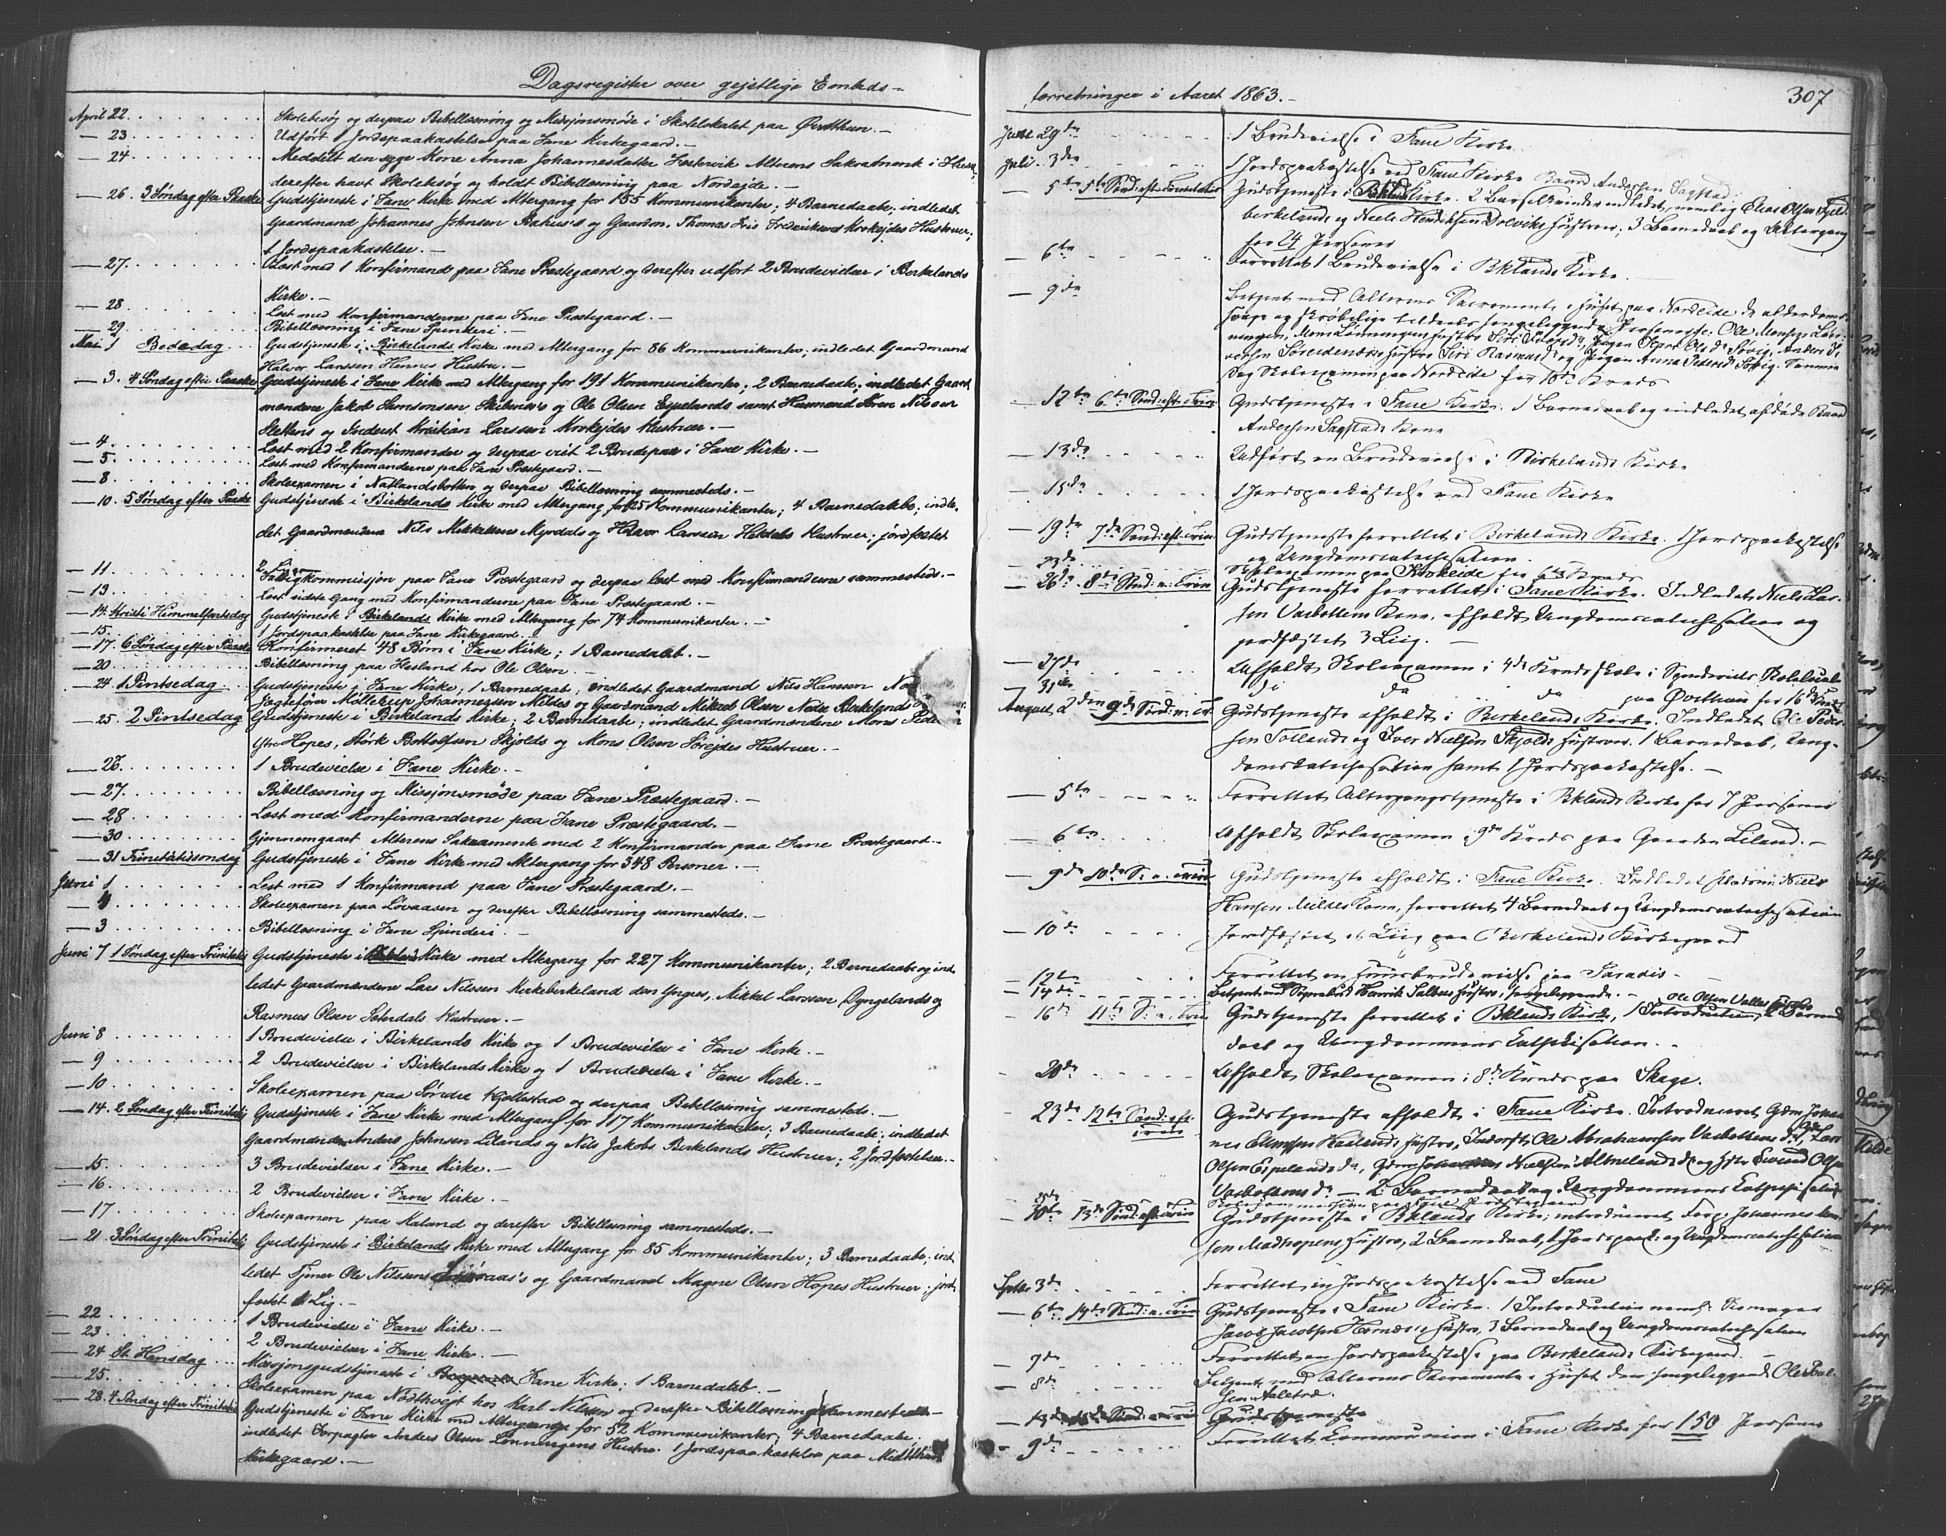 Dagsregister over gejstlige Embeds-
April 22. Skolebesøg og derpaa Bibellæsning og Missjonsmøde i Skolelokalet paa Øvsthun.—
— 23 Udført 1 Jordspaakastelse paa Fane Kirkegaard.—
— 24 Meddelt den syge Kone Anna Johannesdatter Alterens Sakrament i Huset,
derefter havt Skolebesøg og holdt Bibellæsning paa Nordejde.—
— 26 3 Søndag efter Paaske Gudstjeneste i Fane Kirke med Altergang for 155 Kommunikanter; 4 Barnedaab; indledet
Gaardmand Johannes Johnsen og Gaardm. Thomas Fredriksens Krokejdes Hustruer;
1 Jordspaakastelse.—
— 27. Læst med 1 Konfirmand paa Fane Præstegaard og derefter udført 2 Brudevielser i Birkelands
Kirke.—
— 28 Læst med Konfirmanderne paa Fane Præstegaard.—
— 29 Bibellæsning i Fane Spinderi.—
Mai 1 Bededag Gudstjeneste i Birkelands Kirke med Altergang for 86 Kommunikanter; indledet Gaardmand
Halvor Larssen Hennes Hustru.—
— 3. 4 Søndag efter Paaske Gudstjeneste i Fane Kirke med Altergang for 191 Kommunikanter; 2 Barnedaab; indledet Gaard-
mændene Jakob Samsonsen og Ole Olsen Espelands samt Husmand Nilsen
Slettens og Inderst Kristian Larssen Krokejdes Hustruer.—
— 4 Læst med 2 Konfirmander og derpaa viet 2 Brudepar i Fane Kirke.—
— 5 Læst med Konfirmanderne paa Fane Præstegaard.—
— 8 Skoleexamen i Natlandsbotten og derpaa Bibellæsning sammesteds.—
— 10. 5 Søndag efter Paaske Gudstjeneste i Birkelands Kirke med Altergang for 125 Kommunikanter; 4 Barnedaab; indle-
det Gaardmændene Nils Mikkelsens Myrdals og Halvor Larssen Heldals Hustruer; jordfæstet
2 Lig.—
— 11. Fattigkommissjon paa Fane Præstegaard og derpaa læst med Konfirmanderne sammesteds.—
— 13. Læst sidste Gang med Konfirmanderne paa Fane Præstegaard.—
— 14. Kristi Himmelfartsdag Gudstjeneste i Birkelands Kirke med Altergang for 74 Kommunikanter.—
— 15. 1 Jordspaakastelse paa Fane Kirkegaard.—
— 17. 6 Søndag efter Paaske Konfirmeret 48 Børn i Fane Kirke; 1 Barnedaab.—
— 20 Bibellæsning paa Hesland hos Ole Olsen.—
— 24 1 Pintsedag Gudstjeneste i Fane Kirke; 1 Barnedaab; indledet Gaardmand Nils Hansen
Johannessen Mildes og Gaardmand Mikael Olsen Birkelands
— 25 2 Pintsedag Gudstjeneste i Birkelands Kirke; 2 Barnedaab; indledet Gaardmændene Mons
Ytre Hopes, Størk Bottolfsen Skjolds og Mons Olsen Sørejdes Hustruer.—
— 26. 1 Brudevielse i Fane Kirke.—
— 27. Bibellæsning og Missjonsmøde paa Fane Præstegaard.—
— 28 Læst med Konfirmanderne paa Fane Præstegaard.—
— 30 Gjennemgaaet Alterens Sakramente med 2 Konfirmander paa Fane Præstegaard.—
— 31 Trinitatissøndag Gudstjeneste i Fane Kirke med Altergang for 348 Personer.—
Juni 1 Læst med 1 Konfirmand paa Fane Præstegaard.—
Skoleexamen paa Løvaasen og derefter Bibellæsning sammesteds.—
— 3 Bibellæsning i Fane Spinderi.—
Juni 7 1 Søndag efter Trinitatis Gudstjeneste i Kirke med Altergang for 227 Kommunikanter; 2 Barnedaab og ind-
ledet Gaardmændene Lars Nilssen Kirkebirkeland den Yngres, Mikkel Larssen Dyngelands og
Rasmus Olsen Hustruer.—
Juni 8 1 Brudevielse i Birkelands Kirke og 1 Brudevielse i Fane Kirke.—
— 9 2 Brudevielser i Birkelands Kirke og 1 Brudevielse i Fane Kirke.—
— 10 Skoleexamen paa Søndre og derpaa Bibellæsning sammesteds.—
— 14. 2 Søndag efter Trinitatis Gudstjeneste i Fane Kirke med Altergang for 117 Kommunikanter; 3 Barnedaab; indledet
Gaardmændene Anders Johnsen Lilands og Nils Jakobs Birkelands Hustruer; 2 Jordfæstelser.—
— 15. 3 Brudevielser i Fane Kirke.—
— 16 2 Brudevielser i Fane Kirke.—
— 17 Skoleexamen paa Kaland og derefter Bibellæsning sammesteds.—
— 21 3 Søndag efter Trinitatis Gudstjeneste i Birkelands Kirke med Altergang for 85 Kommunikanter; 3 Barnedaab; ind-
ledet Tjener Ole Nilssen og Gaardmand Magne Olsen Hopes Hustruer; jord-
fæstet 1 Lig.—
— 22 1 Brudevielse i Fane Kirke.—
— 23. 2 Brudevielser i Fane Kirke.—
— 24 St. Hansdag Missjonsgudstjeneste i Fane Kirke; 1 Barnedaab.—
— 25. Skoleexamen paa Nødtvejt hos Karl Nilssen og derefter Bibellæsning sammesteds.—
— 28. 4 Søndag efter Trinitatis Gudstjeneste i Fane Kirke med Altergang for 52 Kommunikanter; 4 Barnedaab;
indledet Forpagter Anders Olsen Lønningens Hustru. 1 Jordspaakastelse paa
Kirkegaard.—
forretninger i Aaret 1863.— 307
Juni 29de 1 Brudevielse i Fane Kirke.
Juli 3de 1 Jordspaakastelse ved Fane Kirke Baard Andersen Sagstad
— 5te 5te Sønd: eft. Trinitatis Gudstjeneste i Bklands Kirke. 2 Barselkvinder indledet, nemlig Elias Olsen
birkelands og Niels Henriksen Dolviks Hustruer; 3 Barnedaab og Altergang
for 24 Personer
— 6te Forrettet 1 Brudevielse i Bklands Kirke.
— 9de Betjent med Alterens Sacramente i Huset paa Nordeide de alderdoms-
svage og skrøbelige Ole Monsen Løn-
ningen,
Søreidens Hustru Siri Rasmusd. og Pigen Anna Pedersd. Søvig. Samme
Dag Skoleexamen paa Nordeide for 10de Kreds
— 12te 6te Sønd: eft. Trin. Gudstjeneste i Fane Kirke. 1 Barnedaab og indledet afdøde Baard
Andersen Sagstads Kone
— 13de Udført en Brudevielse i Birkelands Kirke
— 15de 1 Jordspaakastelse ved Fane Kirke
— 19de 7de Sønd: eft. Trin Gudstjeneste forrettet i Birkelands Kirke. 1 Jordspaakastelse
og Ungdomscatechisation.
— 23de Skoleexamen paa Krokeide for 6te Kreds
— 26de 8de Sønd: e. Trin Gudstjeneste forrettet i Fane Kirke. Indledet Niels Lar-
sen Vasbottens Kone, afholdt Ungdomscatechisation og
jordfæstet 3 Liig.—
— 27de Afholdt Skoleexamen i 4de Kredsskole i Søndervids Skolelocale
— 31te do do do paa Øvsthun for 16de Kreds
August 2den 9de Sønd: e. Tr. Gudstjeneste afholdt i Birkelands Kirke. Indledet Ole Peder-
sen Totlands og Iver Nielsen Skjolds Hustruer. 1 Barnedaab, Ung-
domskatechisation samt 1 Jordspaakastelse.—
— 5te Forrettet Altergangstjeneste i Bklands Kirke for 7 Personer
— 6te Afholdt Skoleexamen i 9de Kreds paa Gaarden Liland.—
— 9de 10de S. e. Trin Gudstjeneste afholdt i Fane Kirke. Indledet Niels
Hansen Mildes Kone, forrettet 4 Barnedaab og Ungdomscatechisation
— 10de Jordfæstet et Liig paa Birkelands Kirkegaard
— 12te Forrettet en Huusbrudevielse paa Paradis.
— 14de Betjent Henrik Hustru, sengeliggende.—
— 16de 11te S. e. Trin Gudstjeneste forrettet i Bklands Kirke, 1 Introduction, Ole Olsen 2 Barne-
daab og Ungdommens Catechisation.—
— 20de Afholdt Skoleexamen i 8de Kreds paa Skage.
— 23de 12te Sønd: eft. Trin Gudstjeneste afholdt i Fane Kirke. Introduceret Gdm Johan-
nes Hustru, Inderst Ole Abrahamsen Vasbottens do, Lars
Olsen Espelands do, Gdm Johannes Nielsen do og Eivind Olsen
Vasbottens do.— 2 Barnedaab og Ungdommens Catechisation
— 30te 13de Sønd: eft. Trin Gudstjeneste i Bklands Kirke; introduceret Forp. Johannes
sen Madhopens Hustru, 2 Barnedaab, 1 Jordspaak. og Ungdomscatechisation
Septbr 3de Forrettet en Jordspaakastelse ved Fane
— 6te 14de Sønd: e. Trin Gudstjeneste i Fane Kirke. 1 Introduction neml. Skomager
Jacob Jacobsen Hustru, 3 Barnedaab og Ungdomscatechisation
— 7de Forrettet en Jordspaakastelse paa Birkelands Kirkegaard.—
— 8de Betjent med Alterens Sacramente i Huset den sengeliggende Ole
Gudstjeneste
— 9de Forrettet Communion i Fane Kirke for 150 Personer